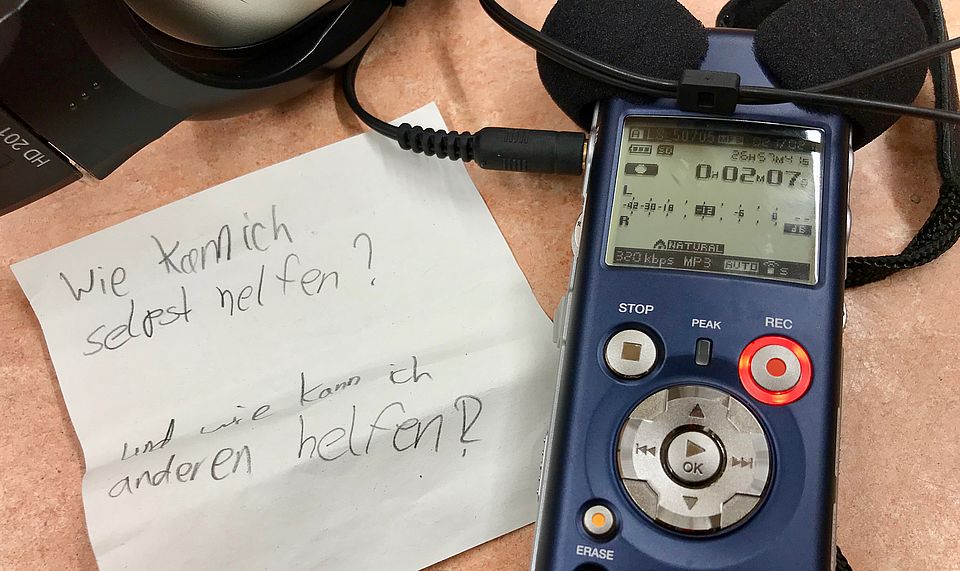 HD 201
Wie kann ich
selbst helfen?
und wie kann ich
anderen helfen?
26H57M41S
0H02M07S
L
-42-30-18 -12 -6 0
R
dB
NATURAL
320 kbps MP3 AUTO S
STOP
PEAK
REC
OK
ERASE